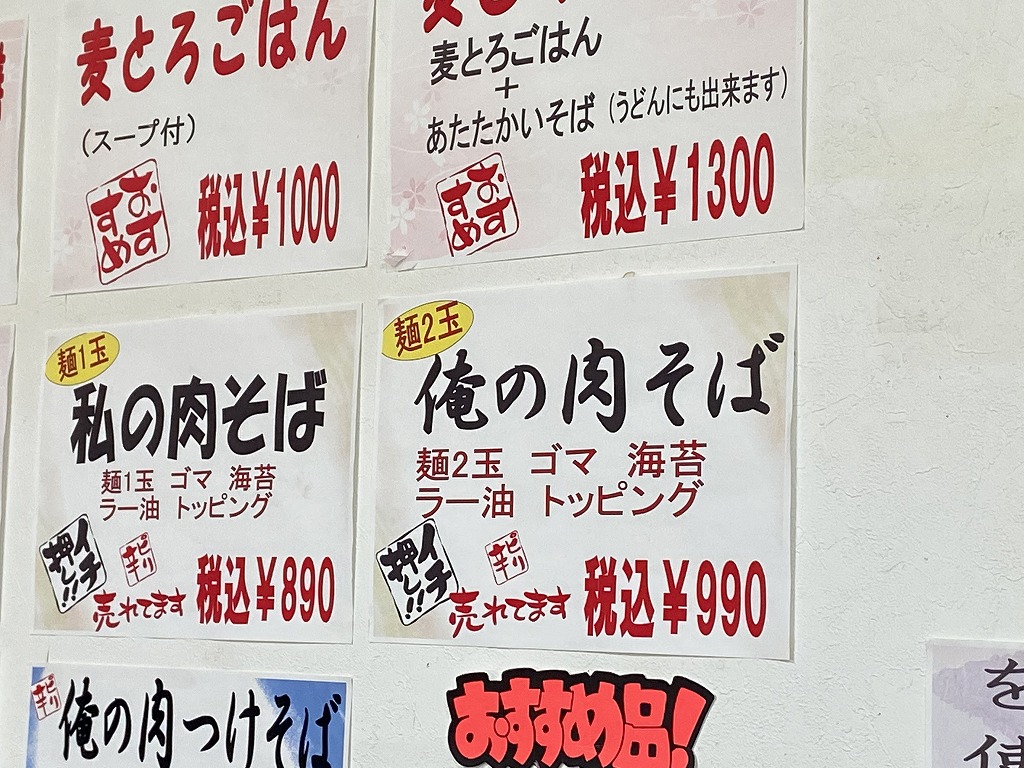 麦とろごはん
(スープ付)
おすすめ
税込¥1000
麦とろごはん
+
あたたかいそば (うどんにも出来ます)
おすすめ
税込¥1300
麺1玉
私の肉そば
麺1玉 ゴマ 海苔
ラー油 トッピング
イチ押し!!
ピリ辛
売れてます
税込¥890
麺2玉
俺の肉そば
麺2玉 ゴマ 海苔
ラー油 トッピング
イチ押し!!
ピリ辛
売れてます
税込¥990
ピリ辛
俺の肉つけそば
おすすめ品!
を